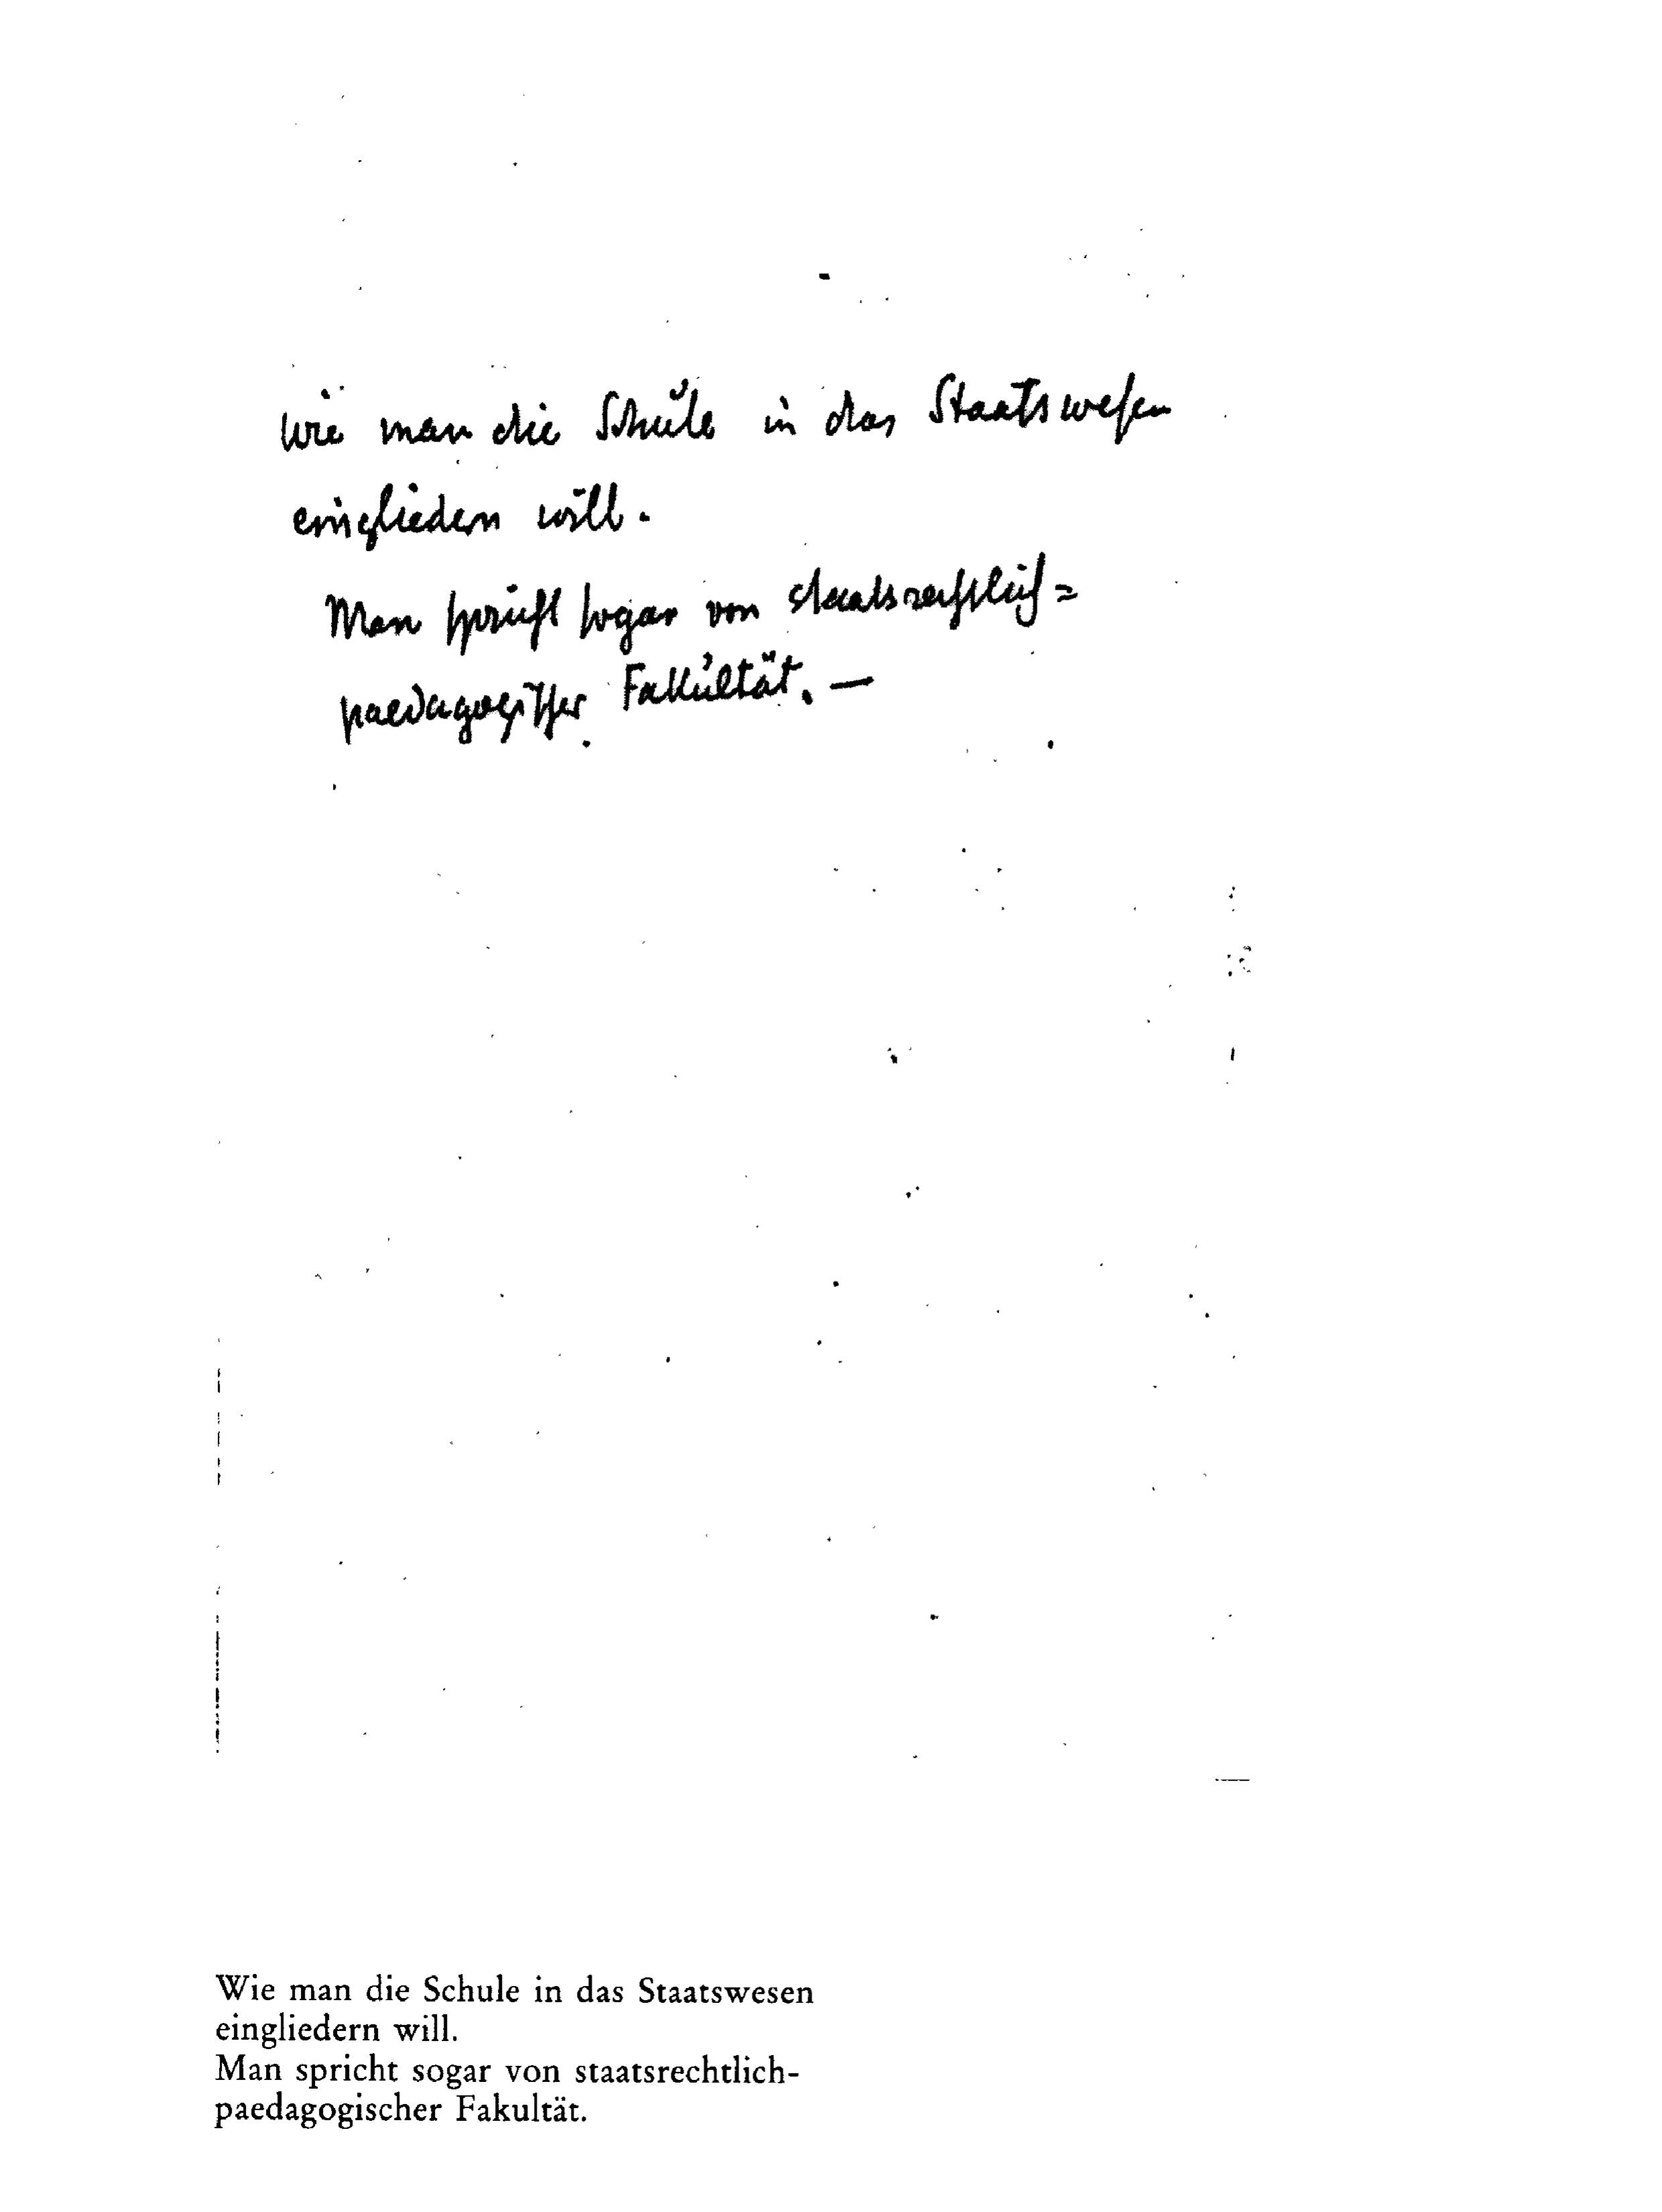 Wie man die Schule in das Staatswesen
eingliedern will.
Man spricht sogar von staatsrechtlich=
paedagogischer Fakultät. —
Wie man die Schule in das Staatswesen
eingliedern will.
Man spricht sogar von staatsrechtlich-
paedagogischer Fakultät.